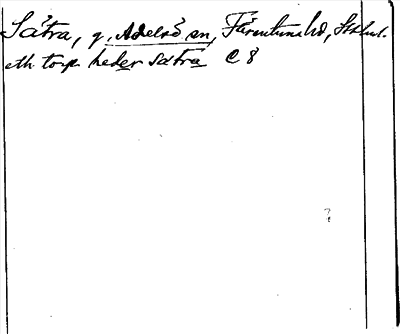 Sätra, g. Adelsö sn, Färentuna hd, Sthlm.
eth torp heder Sätra C 8
?